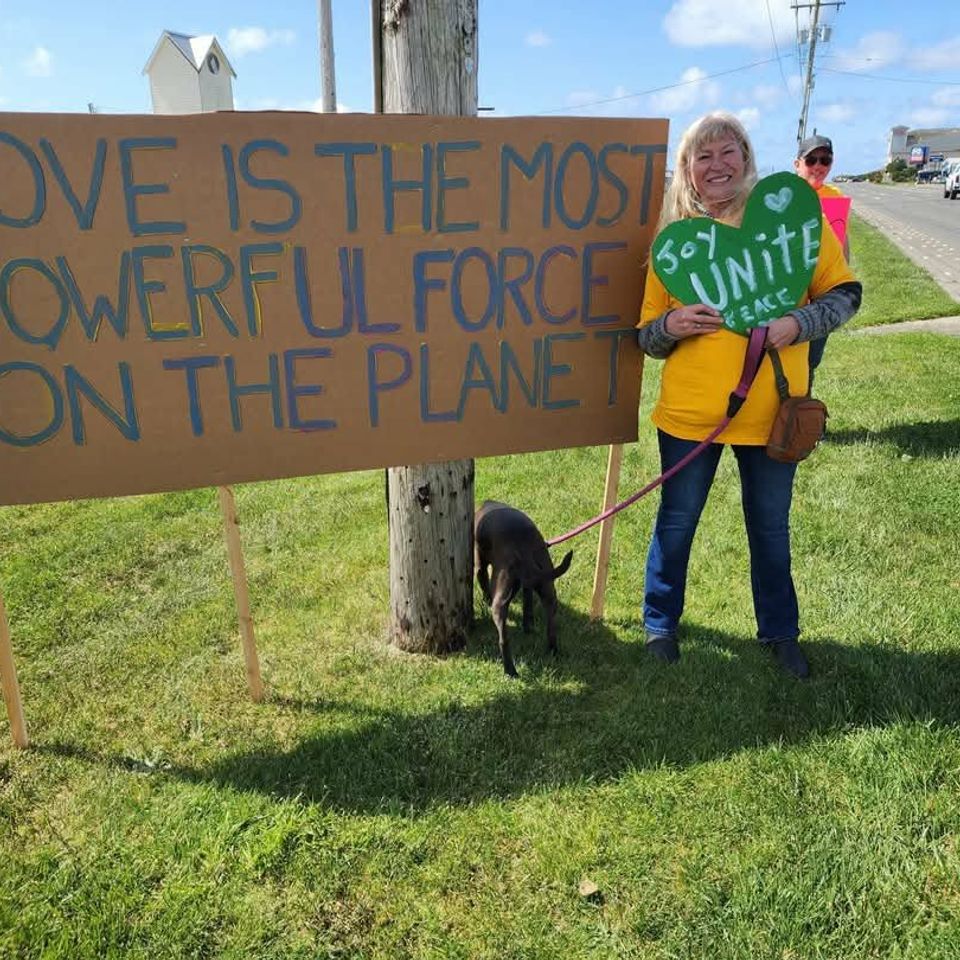 OVE IS THE MOST
OWERFUL FORCE
ON THE PLANET
JOY
UNitE
PEACE